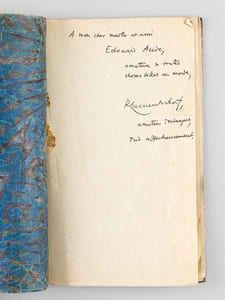 A mon cher maître et ami
Edouard Aude,
amateur de toutes
choses belles au monde,
amateur
très affectueusement